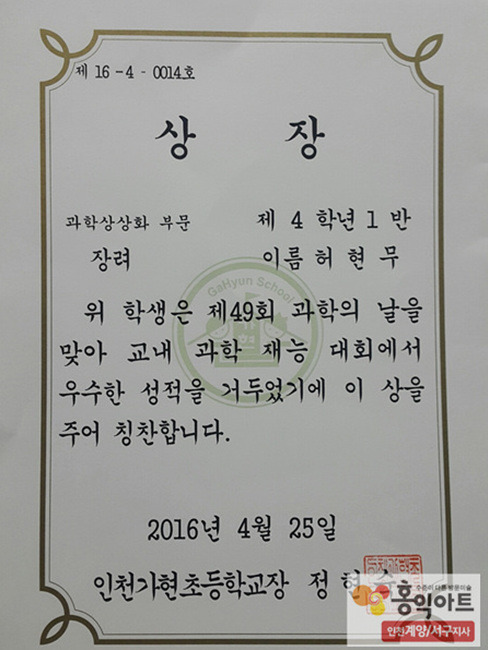 제 16 - 4 - 0014호
상 장
과학상상화 부문 제 4 학년 1 반
장려 이름 허 현 무
GaHyun School
가 현
위 학생은 제49회 과학의 날을
맞아 교내 과학 재능 대회에서
우수한 성적을 거두었기에 이 상을
주어 칭찬합니다.
2016년 4월 25일
인천가현초등학교장 정 현
수준이 다른 방문미술
홍익아트
인천계양/서구지사